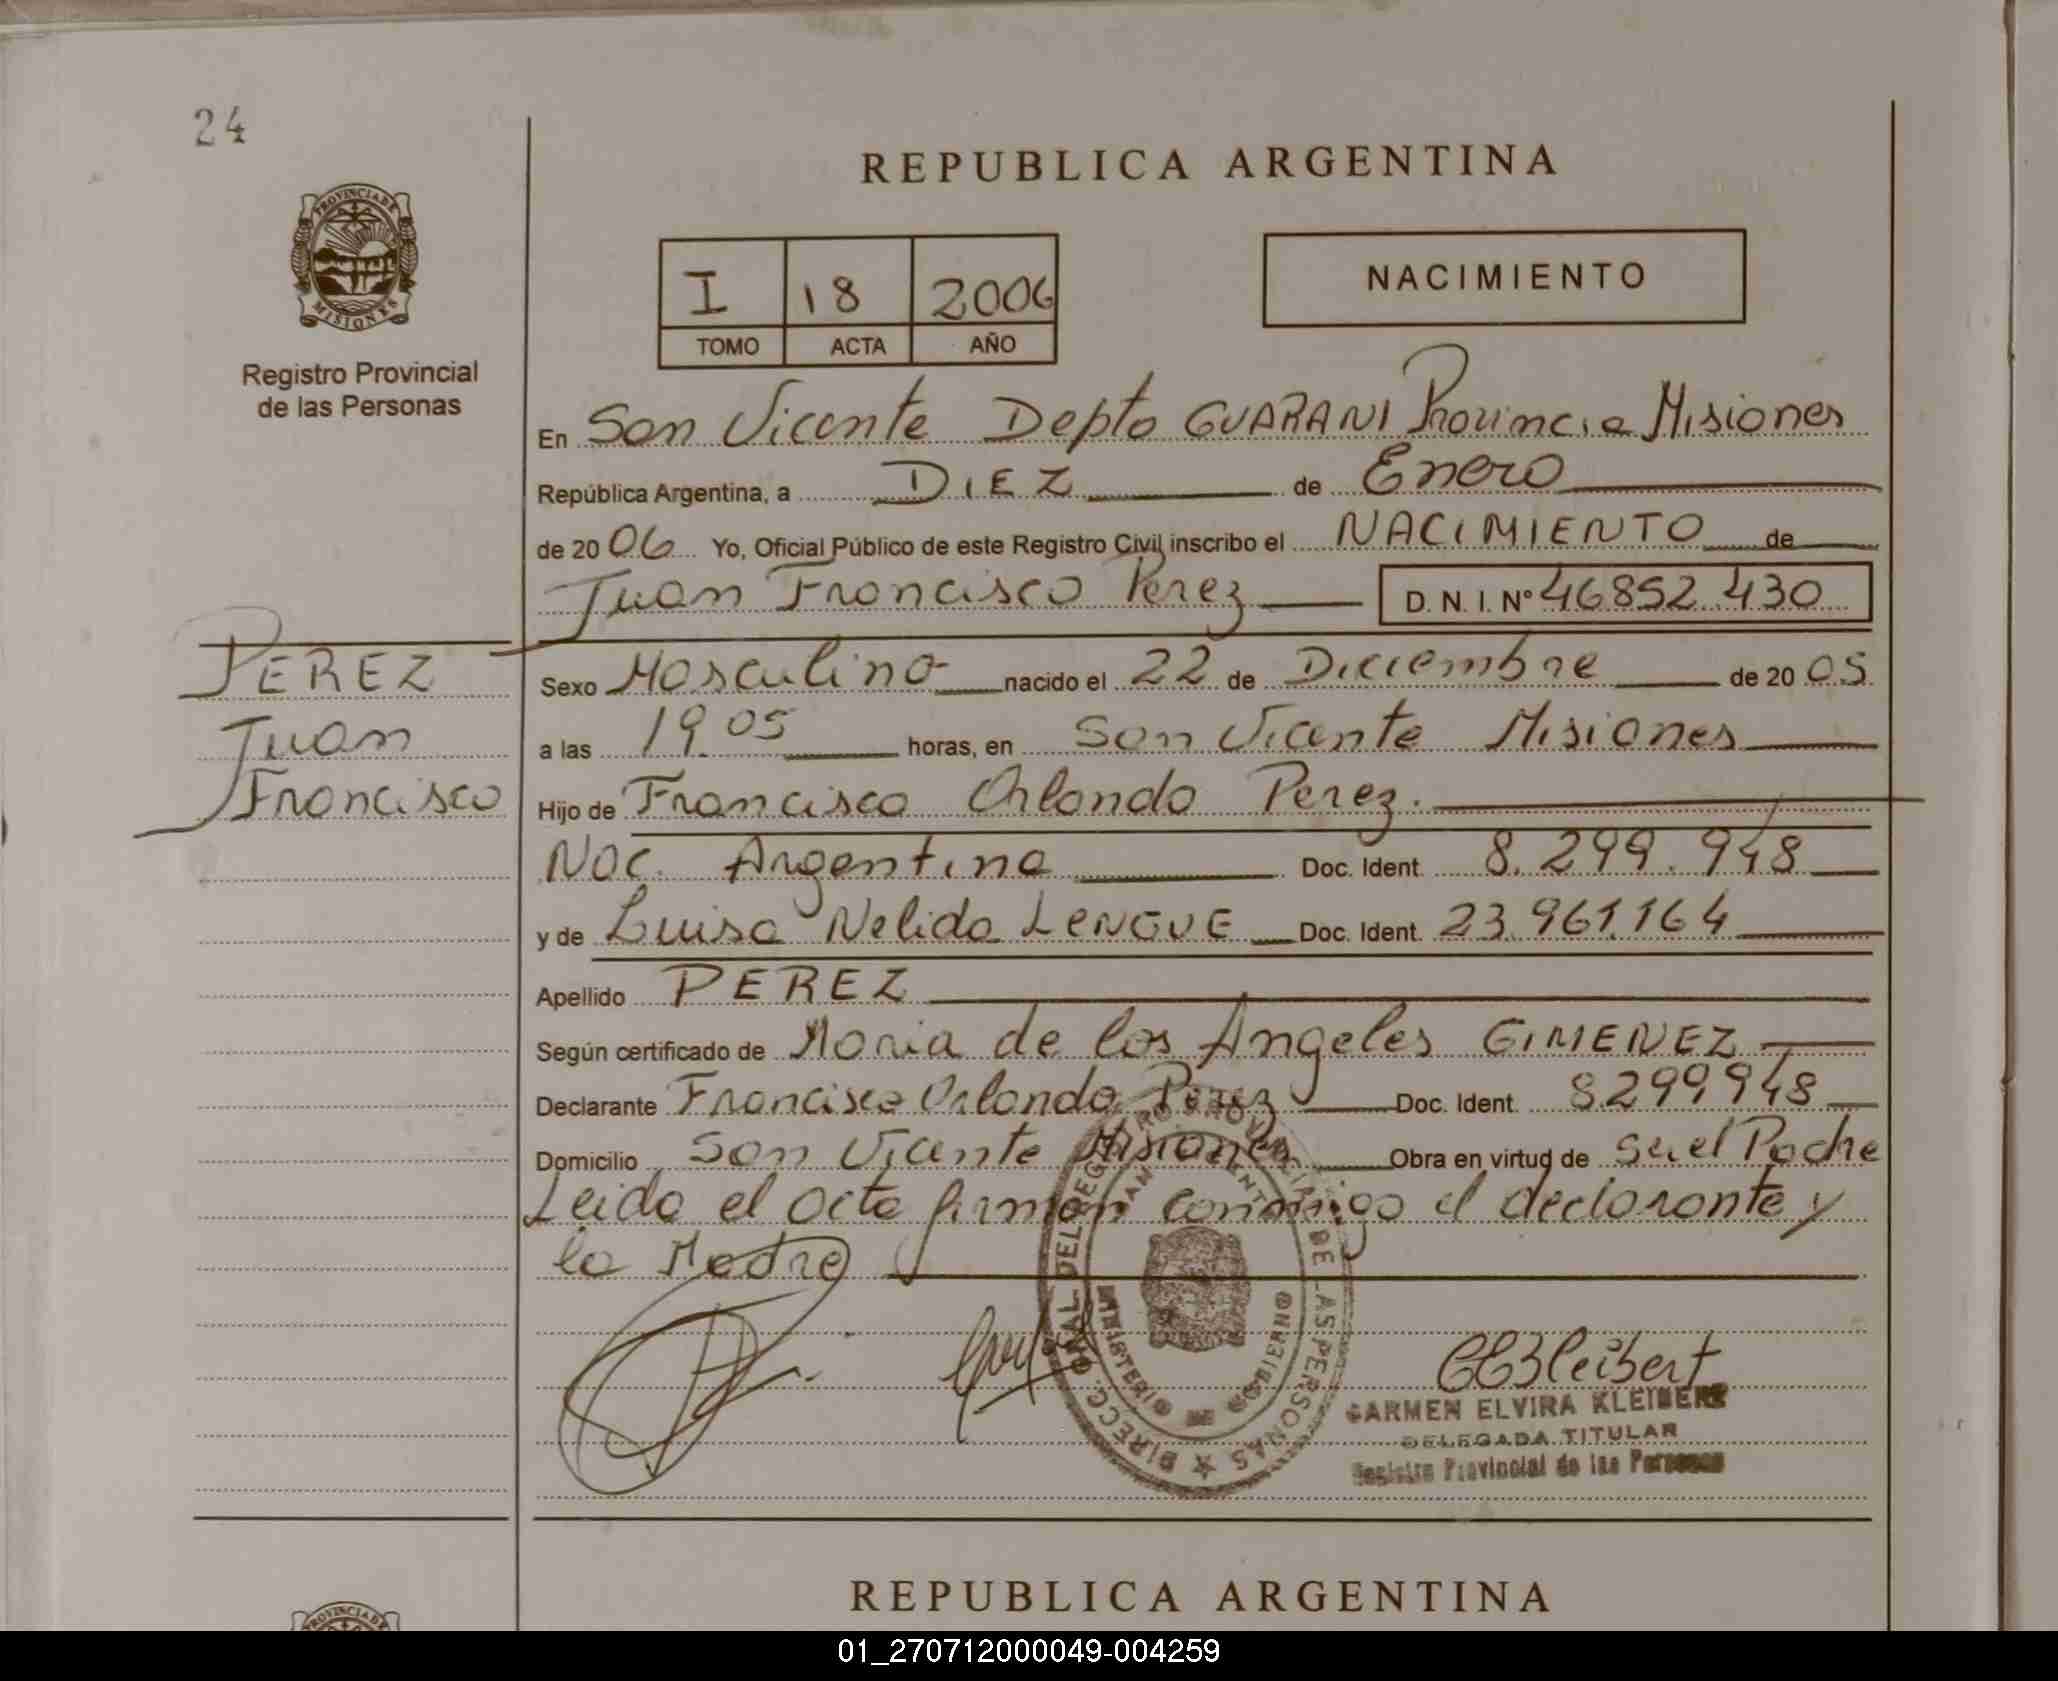 24
REPUBLICA ARGENTINA
PROVINCIA DE
MISIONES
Registro Provincial
de las Personas
I 18 2006
TOMO ACTA AÑO
NACIMIENTO
En San Vicente Depto GUARANI Provincia Misiones
República Argentina, a DIEZ de Enero
de 20 06 Yo, Oficial Público de este Registro Civil inscribo el NACIMIENTO de
Juan Francisco Perez D. N. I. N° 46852.430
PEREZ
Juan
Francisco
Sexo Masculino nacido el 22 de Diciembre de 20 05
a las 19.05 horas, en San Vicente Misiones
Hijo de Francisco Orlando Perez.
Nac. Argentina Doc. Ident. 8.299.948
y de Luisa Nelida LENGUE Doc. Ident. 23.961.164
Apellido PEREZ
Según certificado de Maria de los Angeles GIMENEZ
Declarante Francisco Orlando Perez Doc. Ident. 8299948
Domicilio San Vicente Misiones Obra en virtud de ser el Padre
Leida el acta firman conmigo el declarante y
la Madre
MINISTERIO DE GOBIERNO
CARMEN ELVIRA KLEIBERT
DELEGADA TITULAR
Registro Provincial de las Personas
REPUBLICA ARGENTINA
PROVINCIA DE
01_270712000049-004259